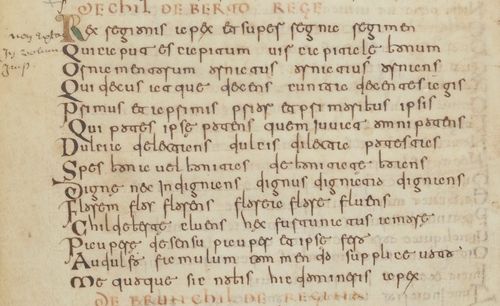 DE CHILDEBERTO REGE
Rex regionis apex et super regna regimen
Qui caput es capitum uir capitale bonum
Ornamentorum ornatus ornatius ornans
Qui decus atque decens cuncta decenter agis
Primus et a primis prior et primoribus ipsis
Qui potes ipse potens quem iuuat omnipotens
Dulcia delectans dulcis dilecta potestas
Spes bona uel bonitas de bonitate bonus
Digne nec indignans dignus dignatio dignans
Florem flos florens florea flore fluens
Childeberte cluens hec furtunatus amore
Paupere de sensu pauper et ipse fero
Audulfo famulum commendo supplice uoto
Me quoque sic nobis hic domineris apex
DE BRUNICHILDE REGINA